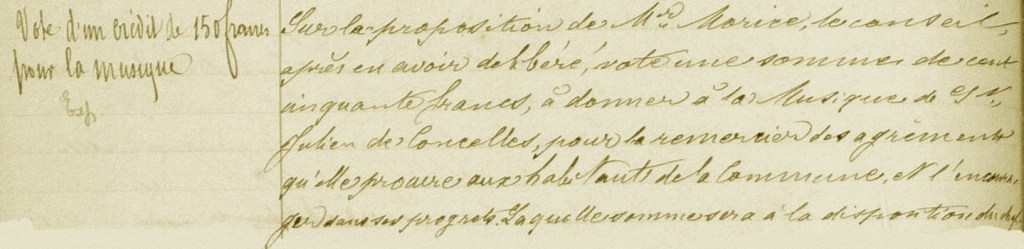 Vote d'un crédit de 150 francs
pour la musique
Exp.
Sur la proposition de Mr. Morice, le conseil,
après en avoir délibéré, vote une somme de cent
cinquante francs, à donner à la Musique de St
Julien de Concelles, pour la remercier des agréments
qu'elle procure aux habitants de la Commune, et l'encoura-
ger dans ses progrets. Laquelle somme sera à la disposition du chef